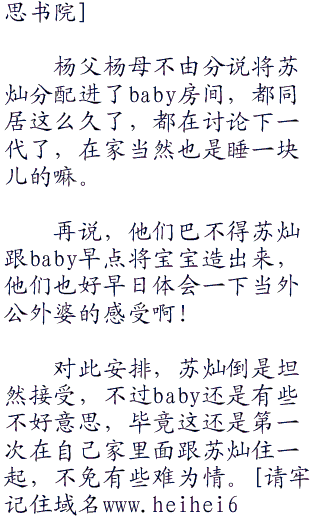 思书院]
杨父杨母不由分说将苏
灿分配进了baby房间，都同
居这么久了，都在讨论下一
代了，在家当然也是睡一块
儿的嘛。
再说，他们巴不得苏灿
跟baby早点将宝宝造出来，
他们也好早日体会一下当外
公外婆的感受啊！
对此安排，苏灿倒是坦
然接受，不过baby还是有些
不好意思，毕竟这还是第一
次在自己家里面跟苏灿住一
起，不免有些难为情。[请牢
记住域名www.heihei6